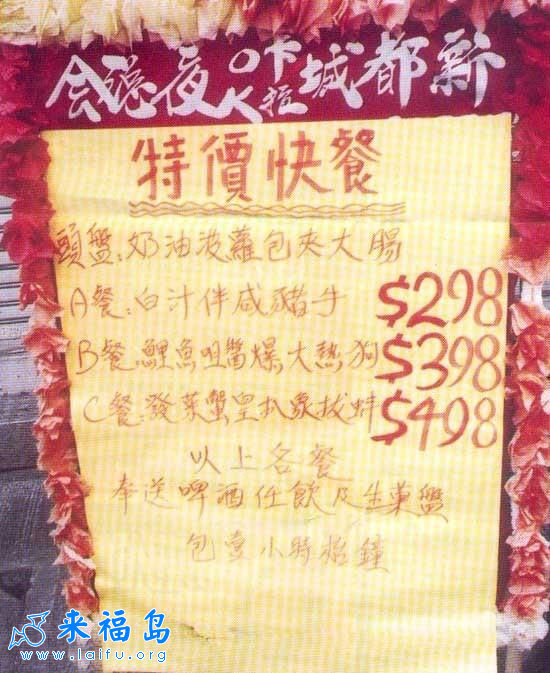 新都城卡拉OK夜總会
特價快餐
頭盤:奶油波蘿包夾大腸
A餐:白汁伴咸豬手 $298
B餐:鯉魚咀醬爆大熱狗 $398
C餐:發菜蟹皇扒象拔蚌 $498
以上各餐
奉送啤酒任飲及生菓盤
包壹小時招鐘
来福岛
www.laifu.org